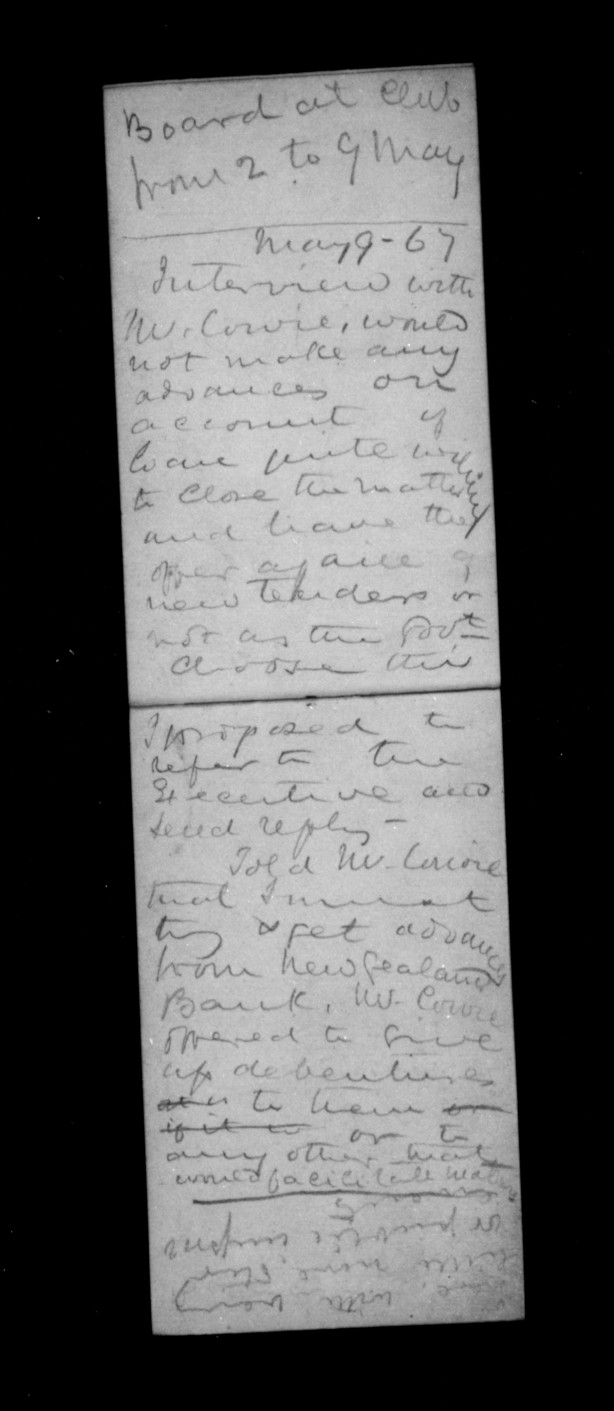 Board at Club
from 2 to 9 May
May 9 - 67
Interview with
Mr. Cowie, would
not make any
advances on
account of
loan quite willing
to close the matter
and have the
offer again of
new tenders or
not as the Govt
choose this
I proposed to
refer to the
Executive and
send reply -
Told Mr. Cowie
that I must
try & get advances
from New Zealand
Bank, Mr. Cowie
offered to give
up debentures
to them or
if it or to
any other that
would facilitate matters